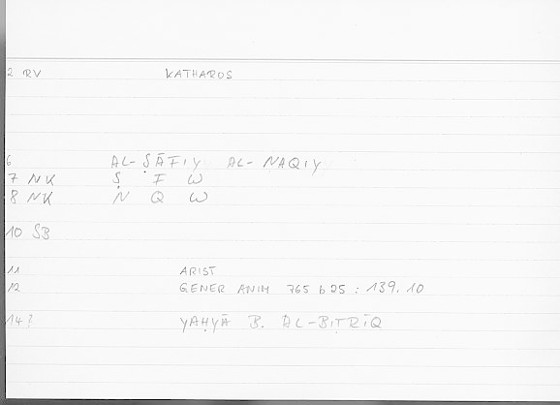 2 RV KATHAROS
6 AL-ṢĀFIY AL-NAQIY
7 NK Ṣ F W
8 NK N Q W
10 SB
11 ARIST
12 GENER ANIM 765 b 25 : 139.10
14? YAḤYĀ B. AL-BIṬRĪQ